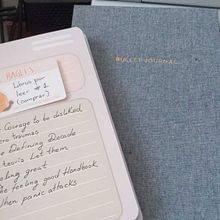 BULLET JOURNAL
Libros por
leer #1
(comprar)
Courage to be disliked
traumas
Defining Decade
Let them
feeling great
feeling good Handbook
When panic attacks